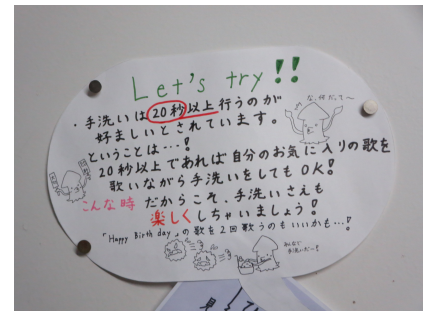 Let's try!!
な、何だって〜
・手洗いは20秒以上行うのが
好ましいとされています。
ということは…!
20秒以上であれば自分のお気に入りの歌を
歌いながら手洗いをしてもOK!
こんな時だからこそ、手洗いさえも
楽しくしちゃいましょう!
「Happy Birthday」の歌を2回歌うのもいいかも…!
みんなで
手洗いだ〜!